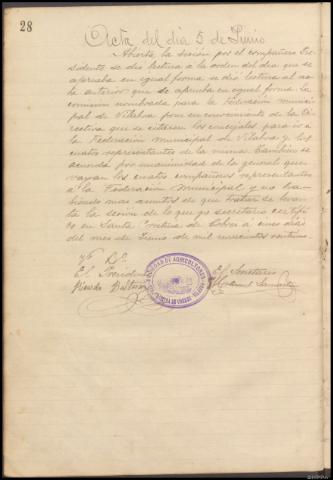 28
Acta del dia 5 de Junio
Abierta la sesión por el compañero Pre-
sidente se dio lectura a la orden del dia que se
aprueba en igual forma se dio lectura al ac
ta anterior que se aprueba en igual forma la
comision nombrada para la Federacion munici
pal de Vilalva pone en conocimiento de la Di
rectiva que se citasen los concejales para ir a
la Federacion Municipal de Vilalva y los
cuatro representantes de la misma tambien se
acuerda por unanimidad de la general que
vayan los cuatro compañeros representantes
a la Federacion Municipal y no ha-
biendo mas asuntos de que tratar se levan
ta la sesion de lo que yo secretario certifi
co en Santa Cristina de Cobres a cinco dias
del mes de Junio de mil novecientos
Vº Bº
El Presidente
El Secretario
Ricardo
Manuel
SOCIEDAD DE AGRICULTORES